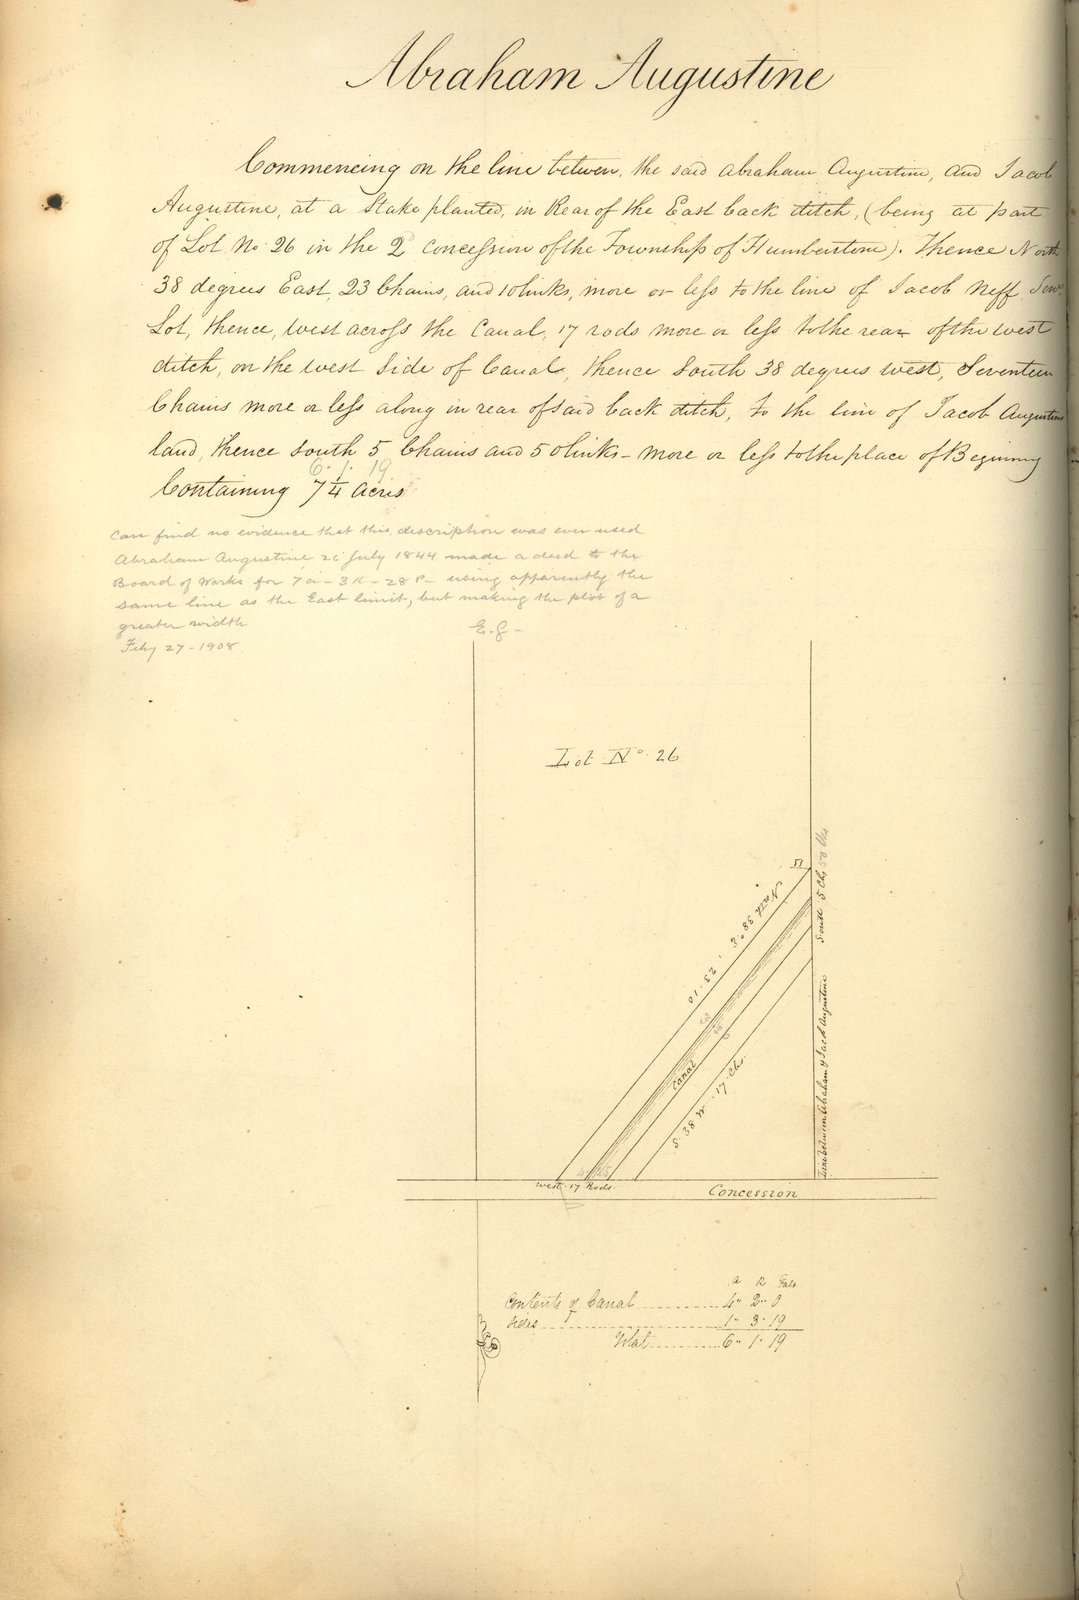 Abraham Augustine
Commencing on the line between, the said Abraham Augustine, and Jacob
Augustine, at a Stake planted, in Rear of the East back ditch, (being at part
of Lot No 26 in the 2d Concession of the Township of Humberstone). Thence North
38 degrees East, 23 Chains, and 10 links, more or less to the line of Jacob Neff, Senr
Lot, thence, west across the Canal, 17 rods more or less to the rear of the west
ditch, on the west Side of Canal, thence South 38 degrees west, Seventeen
Chains more or less along in rear of said back ditch, to the line of Jacob Augustine
land, thence South 5 Chains and 50 links - more or less to the place of Beginning
6 . 1 . 19
Containing 7 1/4 Acres
Can find no evidence that this description was ever used
Abraham Augustine 26 July 1844 made a deed to the
Board of Works for 7a - 3R - 28P - using apparently the
same line as the East limit, but making the plot of a
greater width
E.G -
Feby 27 - 1908.
Lot No 26
North 38° E . 23 . 10
South 5 Chs 50 lks
Canal
S. 38 W. 17 Chs.
Line between Abraham & Jacob Augustine
West . 17 Rods.
Concession
A R
Contents of Canal 4 " 2 " 0
sides 1 " 3 . 19
Total 6 " 1 . 19